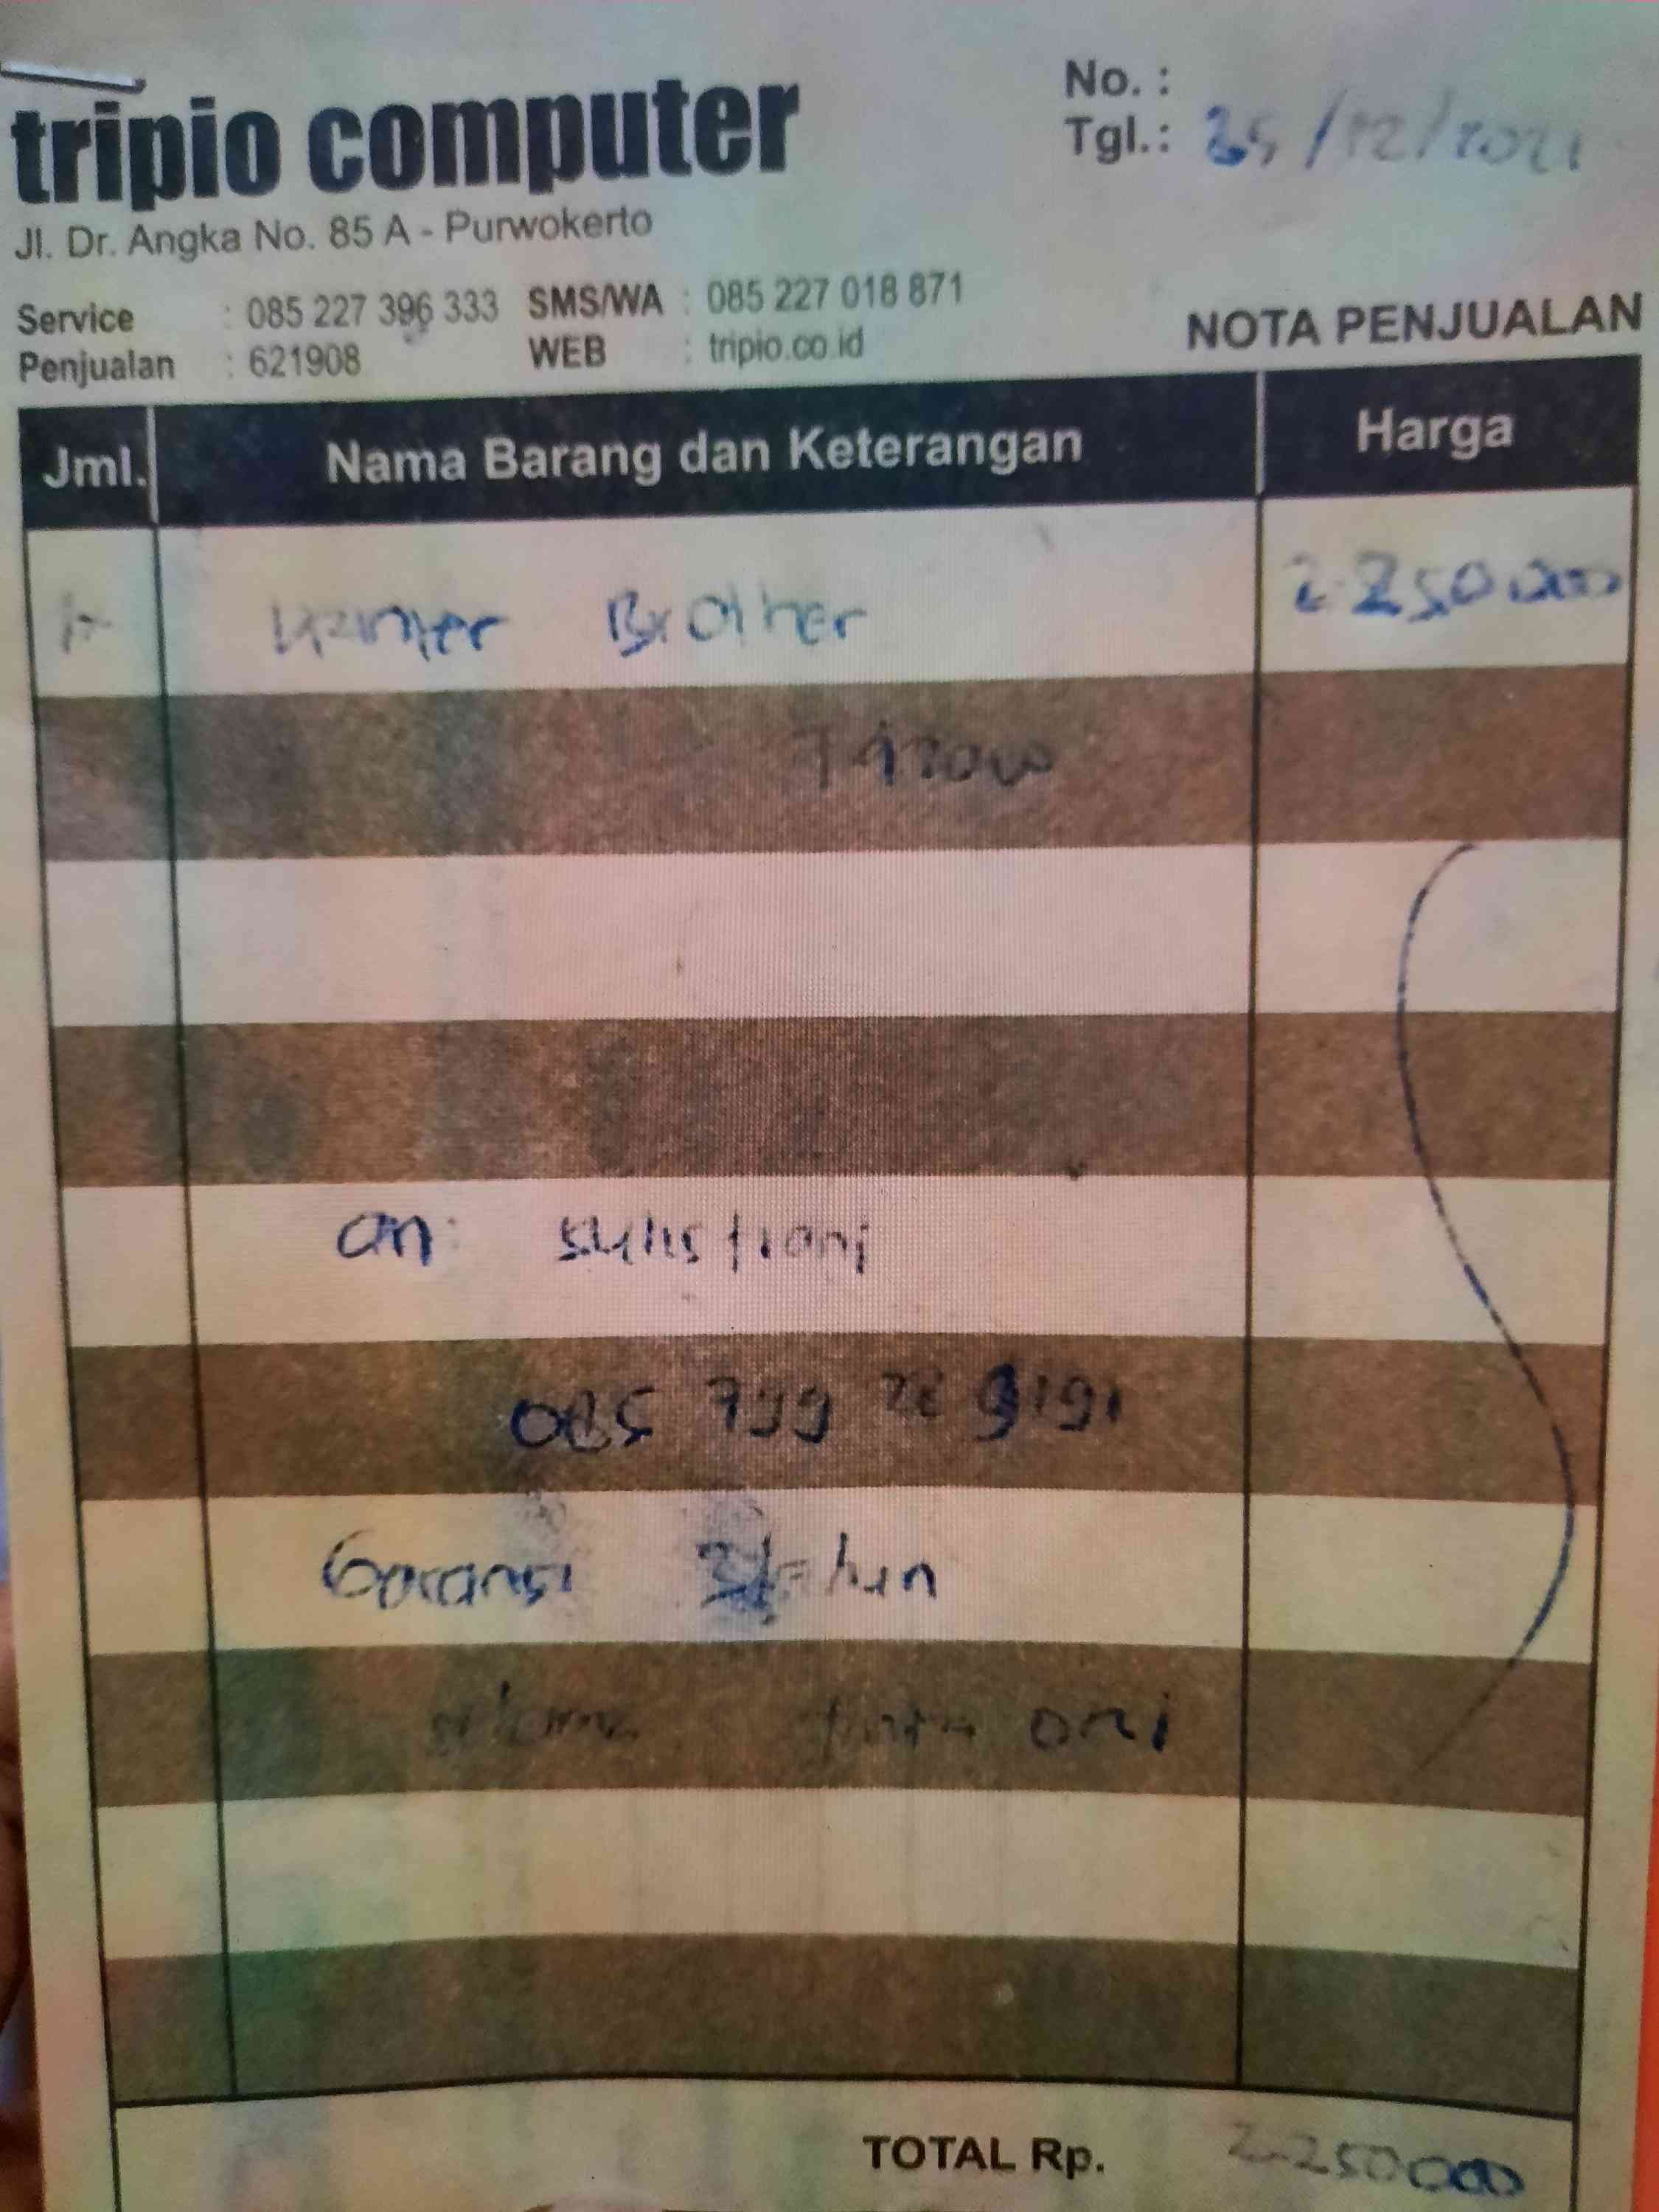 tripio computer
No. :
Tgl.: 25/12/2021
Jl. Dr. Angka No. 85 A - Purwokerto
Service : 085 227 396 333 SMS/WA : 085 227 018 871
Penjualan : 621908 WEB : tripio.co.id
NOTA PENJUALAN
Jml. Nama Barang dan Keterangan Harga
Printer Brother 2.250.000
an: sulistiani
085 799 28 9191
Garansi tahun
selama tinta ori
TOTAL Rp. 2.250000